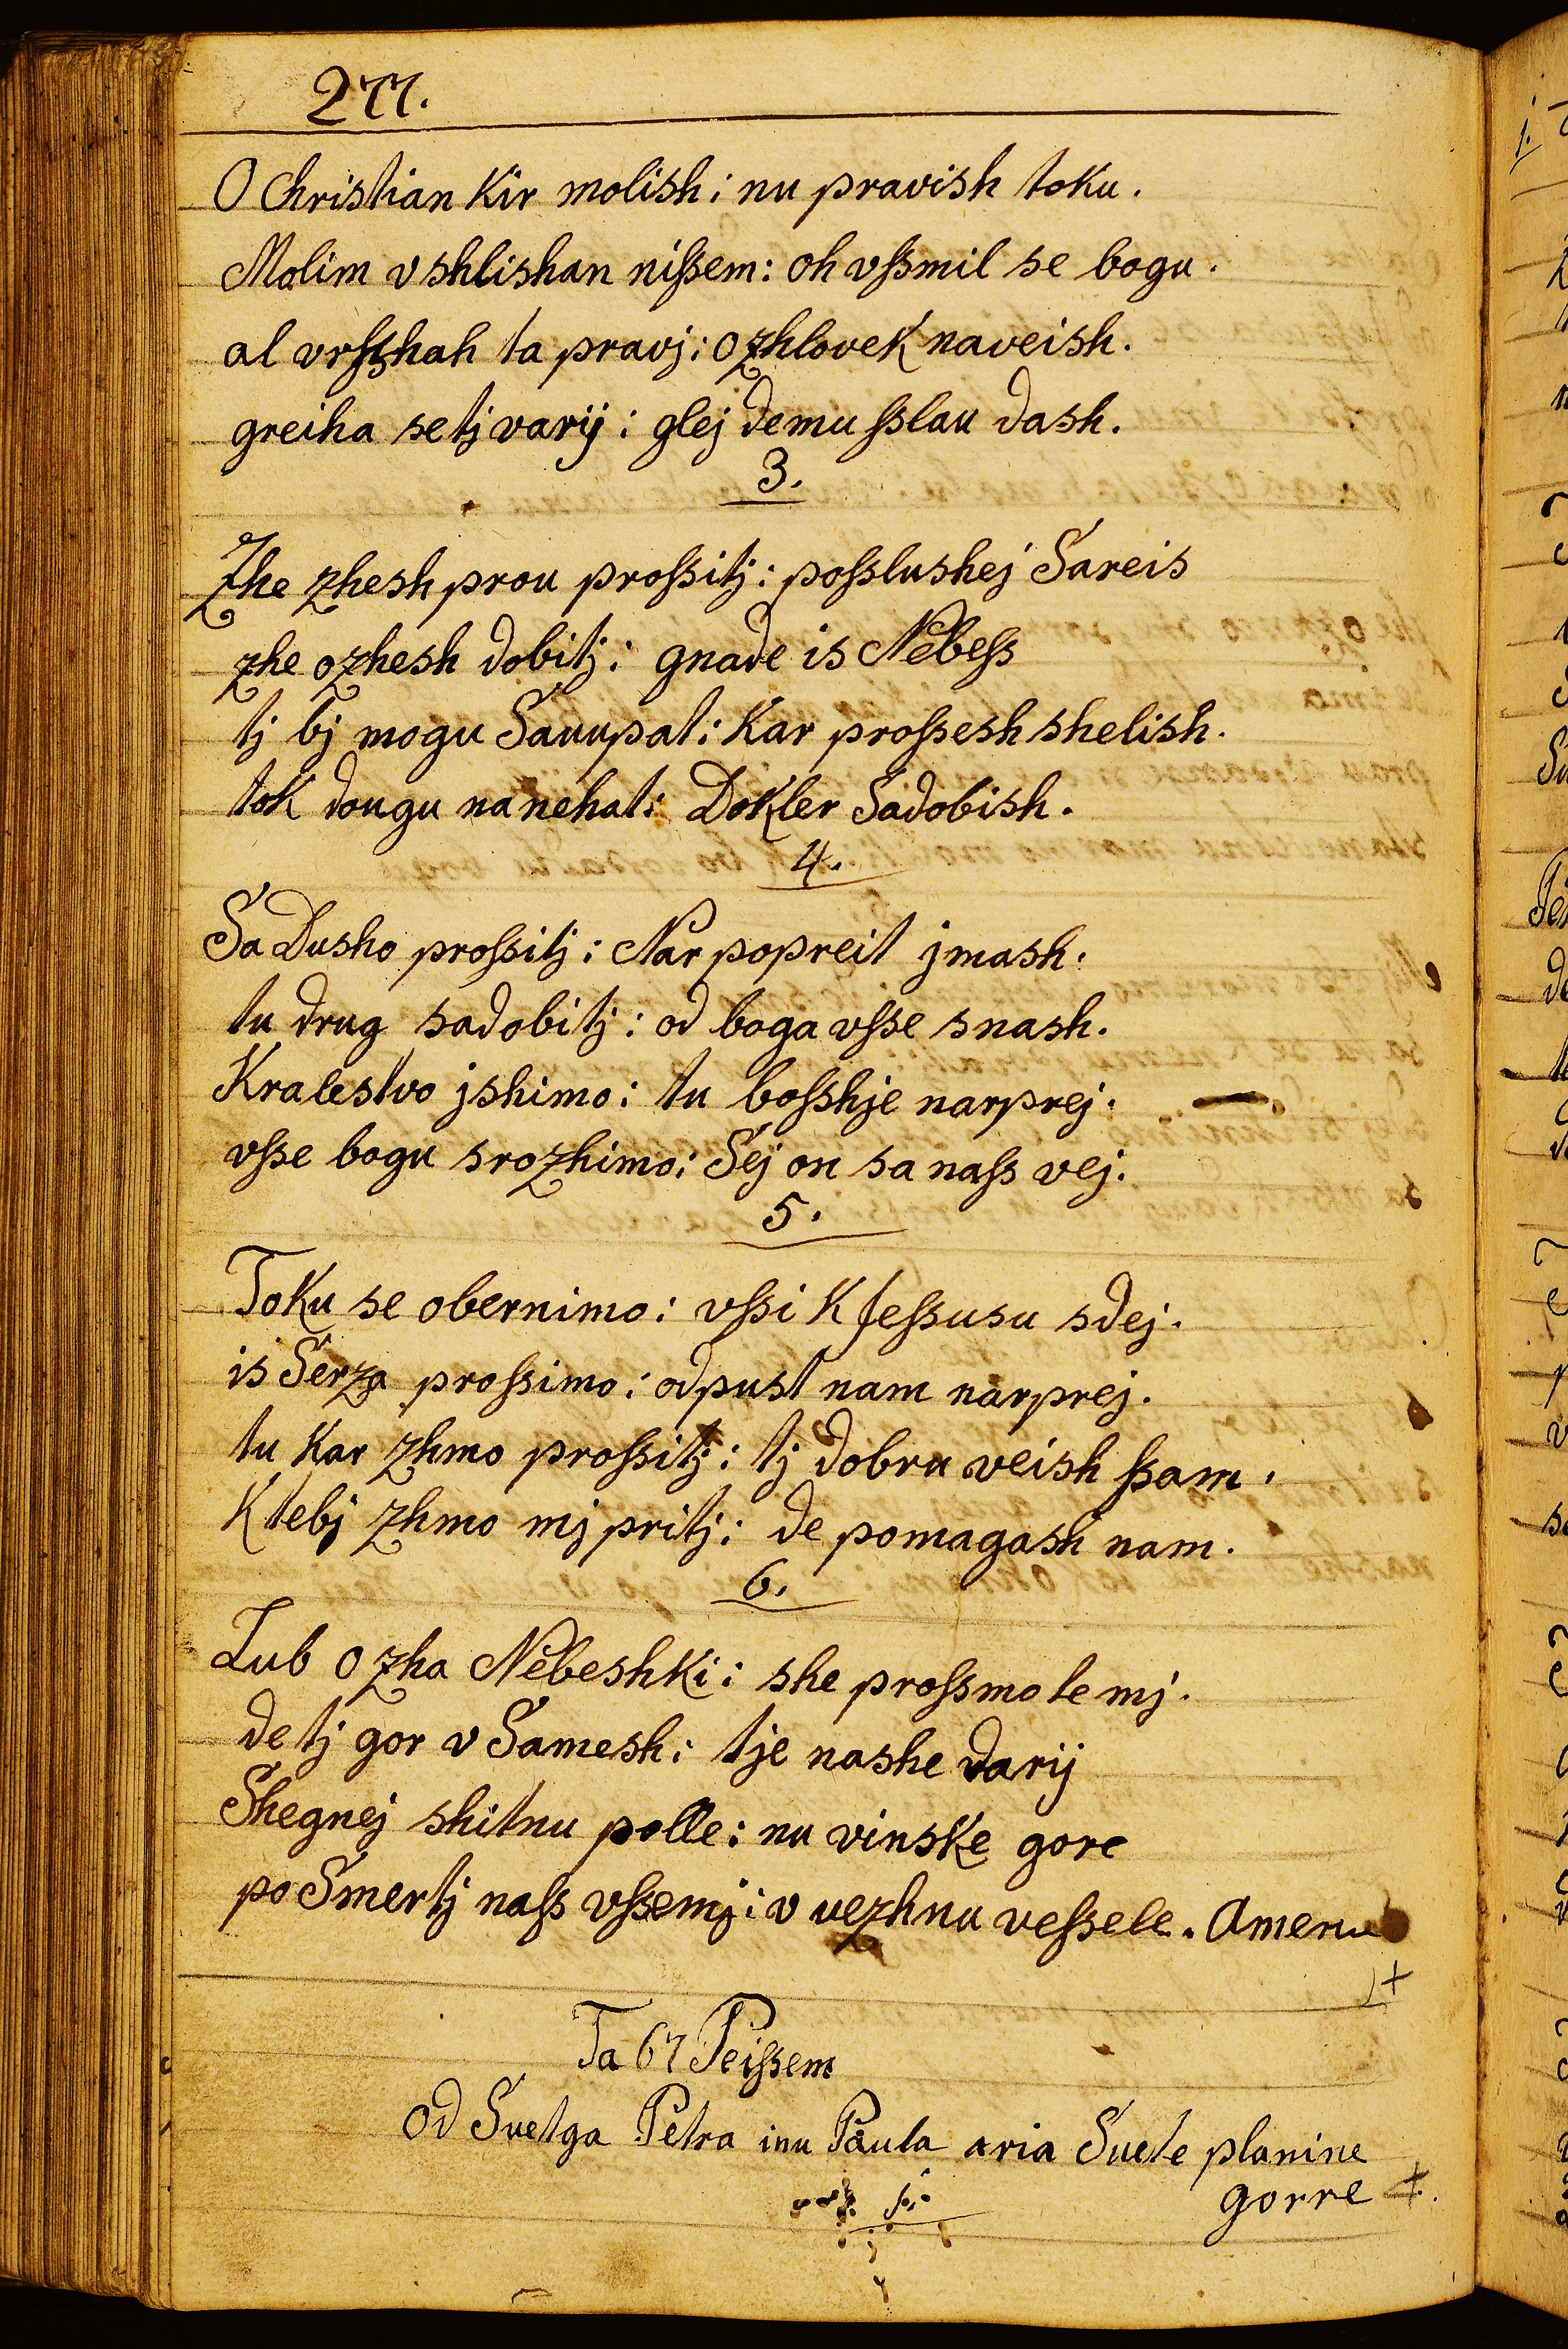 277.
O Christian Kir molish: nu pravish toku.
Molim vshlishan nißem: oh vßmil se bogu.
al vrßhah ta pravj: ozhlovek naveish.
greiha setj varij: glej demu ßlau dash.
3.
Zhe zhesh prou proßitj: poßlushej Sareis
zhe ozhesh dobitj: gnade is Nebeß
tj bj mogu Sauupat: Kar proßesh shelish.
tok dougu nanehat: Dokler Sadobish.
4.
Sa Dusho proßitj: Nar popreit jmash.
tu drug sadobitj: od boga vße snash.
Kralestvo jshimo: tu boßhje narprej.
vße bogu srozhimo: Sej on sa naß vej.
5.
Toku se obernimo: vßi K Jeßusu sdej.
is Serza proßimo: odpust nam narprej.
tu Kar zhmo proßitj: tj dobru veish ßam.
K tebj zhmo mj pritj: de pomagash nam.
6.
Lub Ozha Nebeshki: she proßmo te mj.
de tj gor v Samesh: tje nashe darij
Shegnej shitnu polle: nu vinske gore
po Smertj naß vßemj: v uezhnu veßele. Amen
Ta 67 Peißem
Od Suetga Petra inu Paula aria Suete planine
gorre